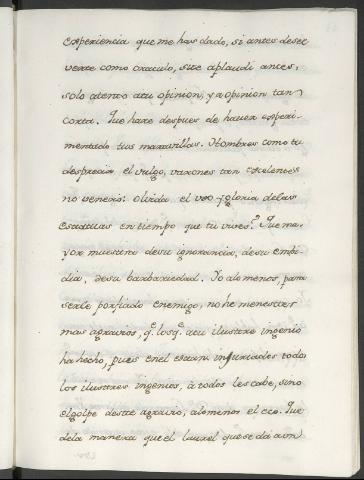 experiencia que me has dado, si antes de se
verte como oraculo, si te aplaudi antes,
solo atento a tu opinion, ya opinion tan
corta. Que hare despues de haver experi-
mentado tus maravillas. Hombres como tu
desprecia el vulgo, varones tan excelentes
no venera: olvida el uso y gloria de las
estatuas en tiempo que tu vives? Que ma-
yor muestra de su ignorancia, de su embi-
dia, de su barbariedad. Yo alomenos, para
serle porfiado enemigo, no he menester
mas agravios, q.e los q.e a tu ilustre ingenio
ha hecho, pues en el estan injuriados todo
los ilustres ingenios, à todos les cabe, sino
el golpe deste agravio, alomenos el eco. Que
de la manera que el laurel que se da a un